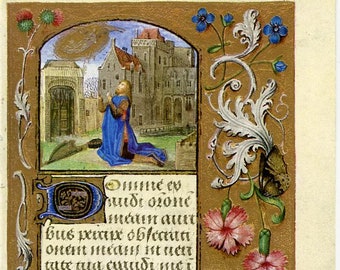 Domine ex
audi orone
meam auri
bus percipe obsecrati
onem meam in veri
tate tua exaudi me i